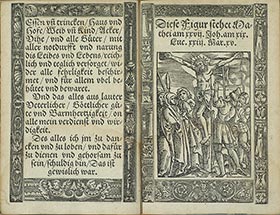 Essen vñ trincken / Haus vnd
Hofe / Weib vñ Kind / Acker /
Vihe / vnd alle Güter / mit
aller notdurfft vnd narung
dis Leibes vnd Lebens / reich-
lich vnd teglich versorget / wi-
der alle fehrligkeit beschir-
met / vnd für allem vbel be-
hütet vnd bewaret.
Vnd das alles aus lauter
Veterlicher / Göttlicher gü-
te vnd Barmhertzigkeit / on
alle mein verdienst vnd wir-
digkeit.
Des alles ich jm zu dan-
cken vnd zu loben / vnd dafür
zu dienen vnd gehorsam zu
sein / schuldig bin / Das ist
gewislich war.
Diese Figur stehet Ma-
thei am xxvij. Joh. am xix.
Luc. xxiij. Mar. xv.